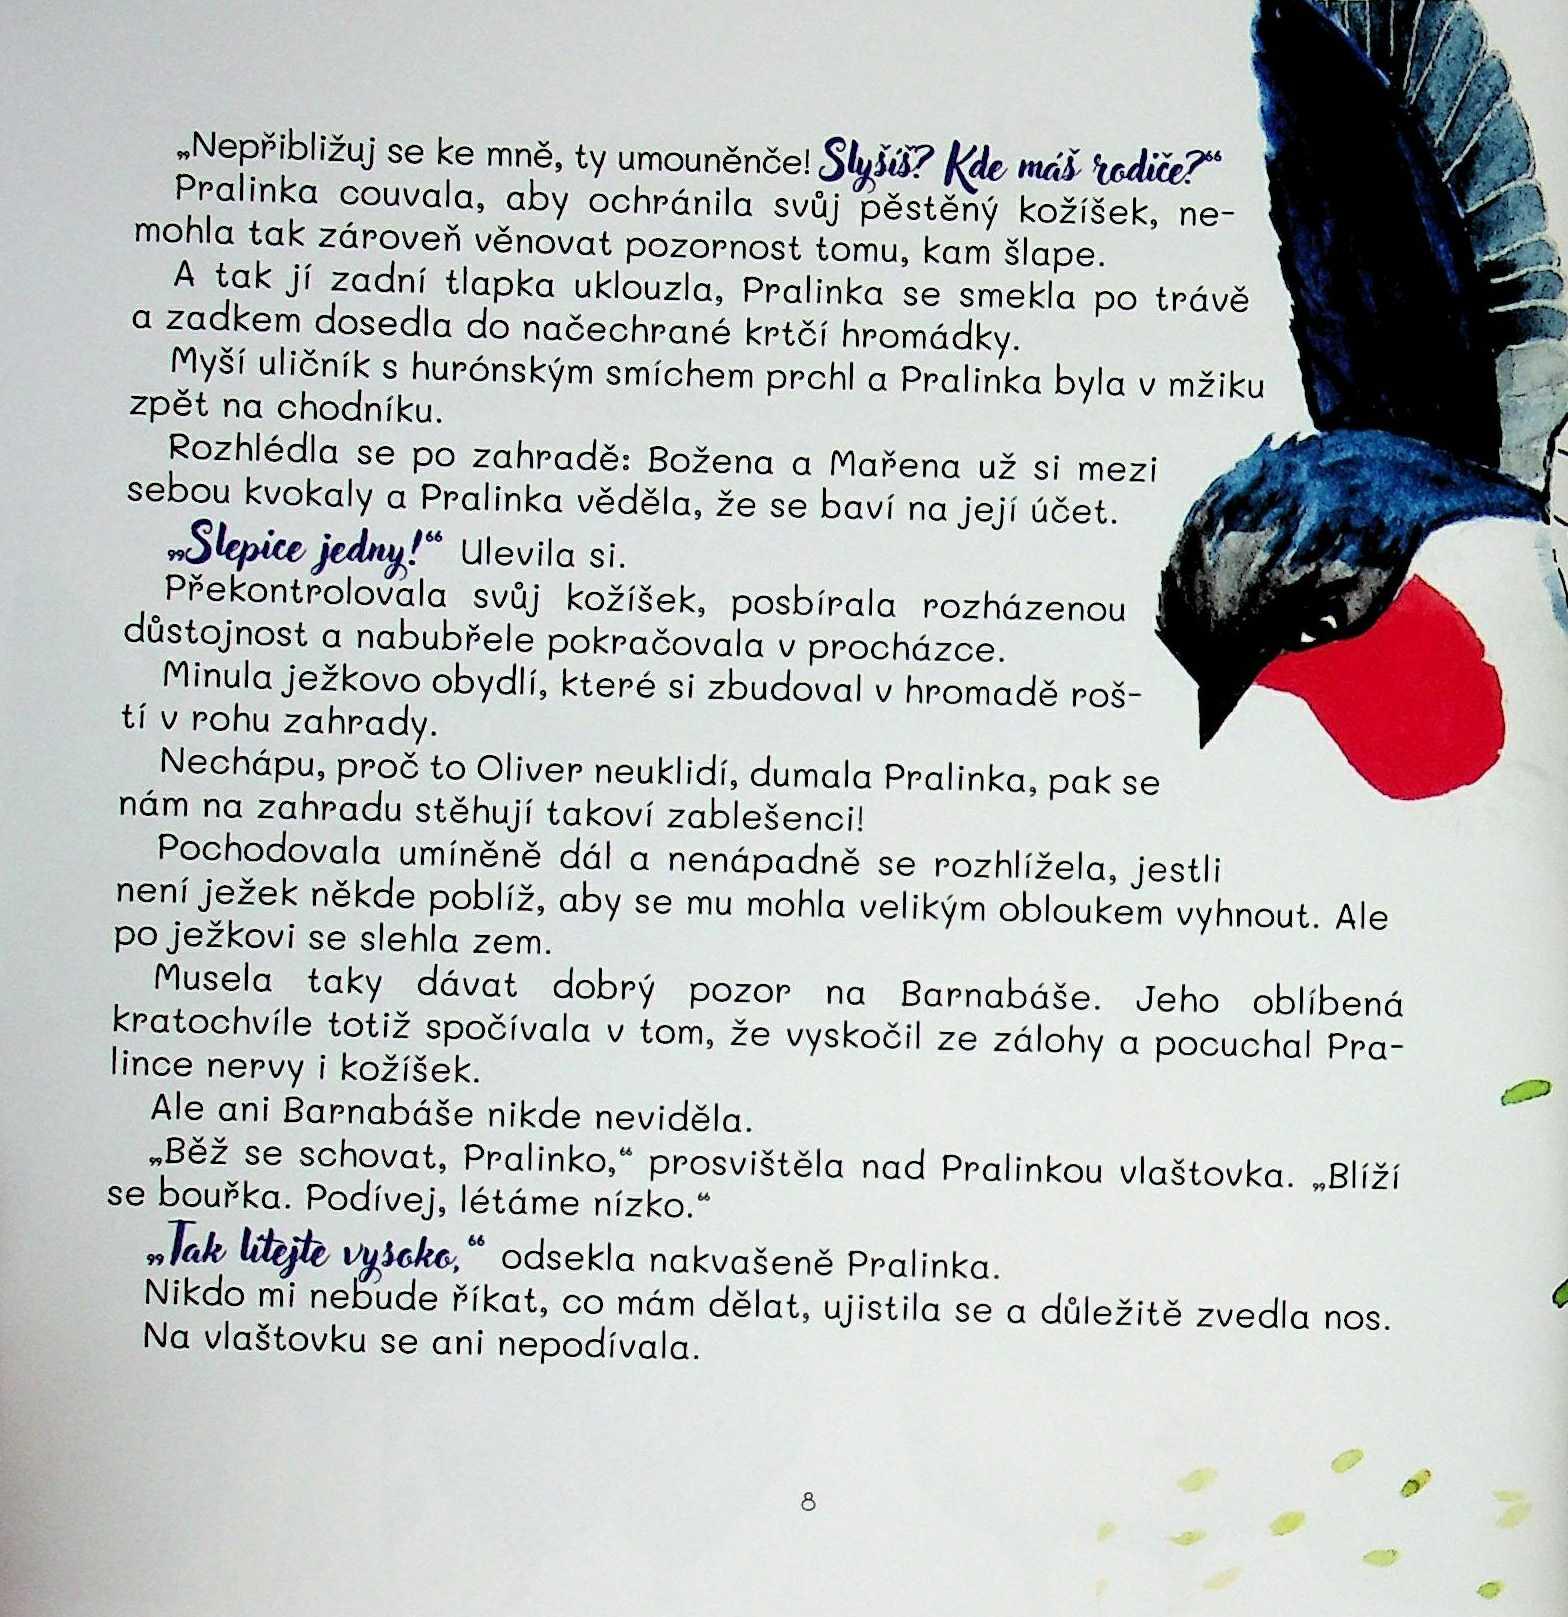 „Nepřibližuj se ke mně, ty umouněnče! Slyšíš? Kde máš rodiče?“
Pralinka couvala, aby ochránila svůj pěstěný kožíšek, ne-
mohla tak zároveň věnovat pozornost tomu, kam šlape.
A tak jí zadní tlapka uklouzla, Pralinka se smekla po trávě
a zadkem dosedla do načechrané krtčí hromádky.
Myší uličník s hurónským smíchem prchl a Pralinka byla v mžiku
zpět na chodníku.
Rozhlédla se po zahradě: Božena a Mařena už si mezi
sebou kvokaly a Pralinka věděla, že se baví na její účet.
„Slepice jedny!“ Ulevila si.
Překontrolovala svůj kožíšek, posbírala rozházenou
důstojnost a nabubřele pokračovala v procházce.
Minula ježkovo obydlí, které si zbudoval v hromadě roš-
tí v rohu zahrady.
Nechápu, proč to Oliver neuklidí, dumala Pralinka, pak se
nám na zahradu stěhují takoví zablešenci!
Pochodovala umíněně dál a nenápadně se rozhlížela, jestli
není ježek někde poblíž, aby se mu mohla velikým obloukem vyhnout. Ale
po ježkovi se slehla zem.
Musela taky dávat dobrý pozor na Barnabáše. Jeho oblíbená
kratochvíle totiž spočívala v tom, že vyskočil ze zálohy a pocuchal Pra-
lince nervy i kožíšek.
Ale ani Barnabáše nikde neviděla.
„Běž se schovat, Pralinko,“ prosvištěla nad Pralinkou vlaštovka. „Blíží
se bouřka. Podívej, létáme nízko.“
„Tak lítejte vysoko,“ odsekla nakvašeně Pralinka.
Nikdo mi nebude říkat, co mám dělat, ujistila se a důležitě zvedla nos.
Na vlaštovku se ani nepodívala.
8